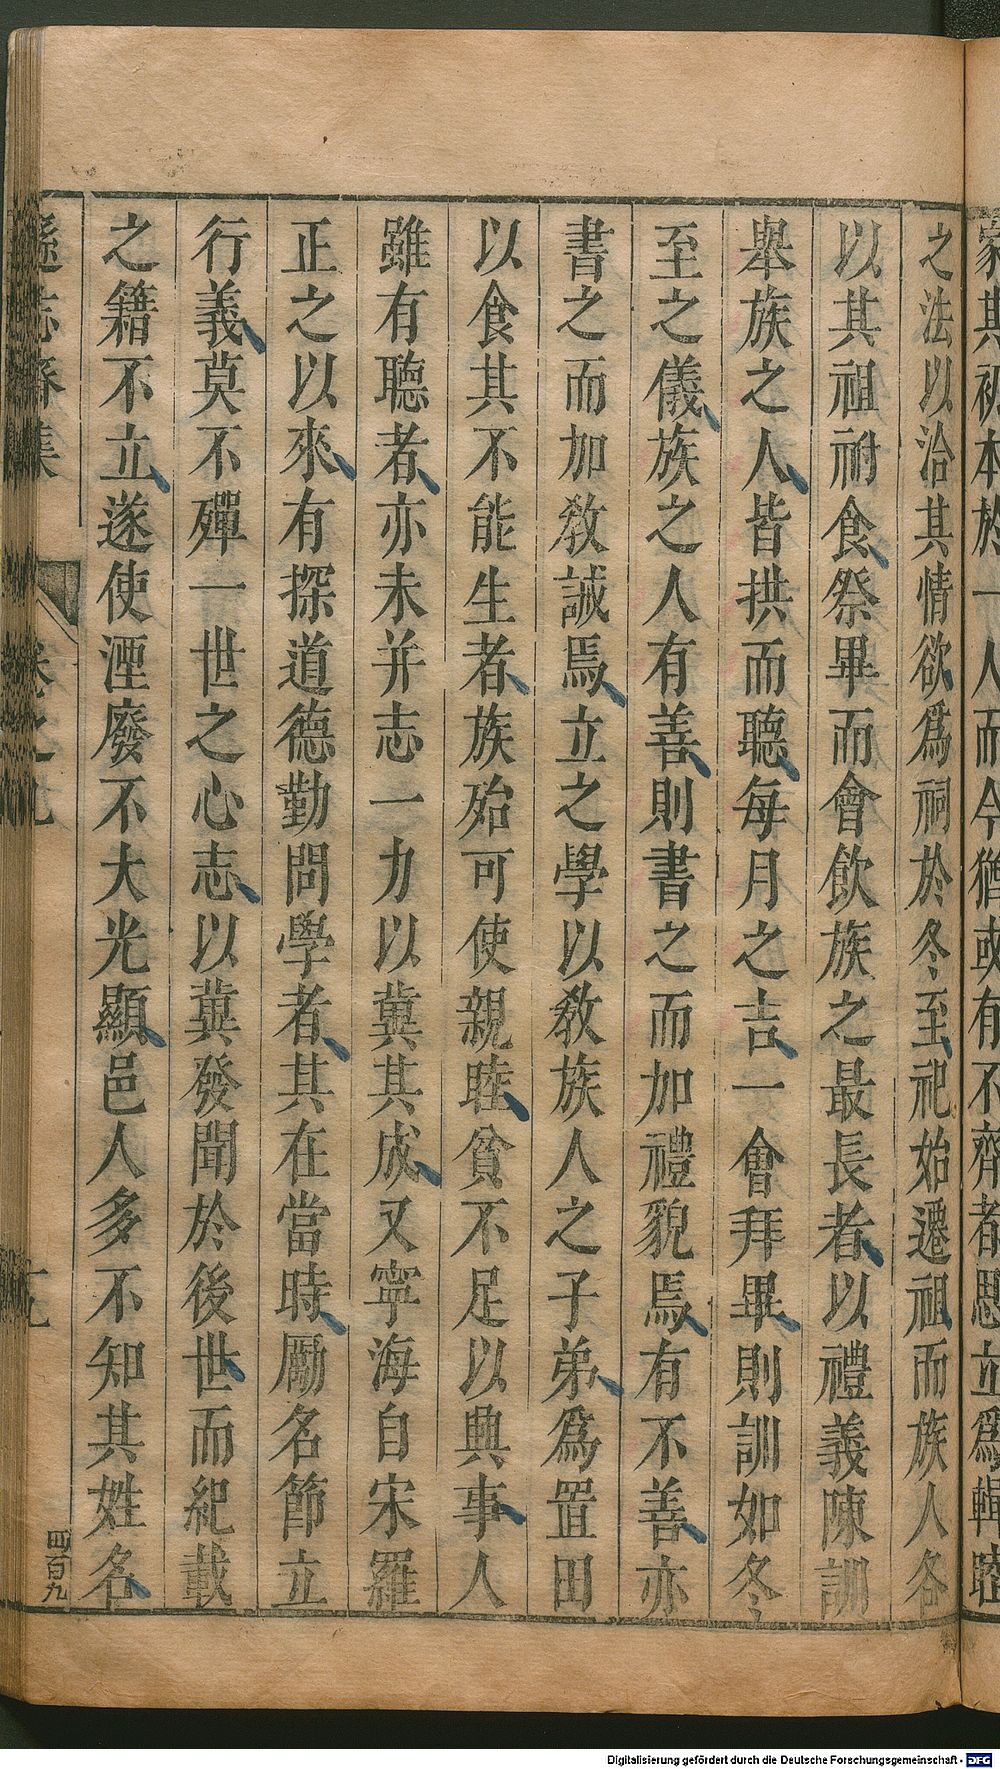 家其初本於一人而今猶或有不齊者思立爲輯睦
之法以洽其情欲爲祠於冬至祀始遷祖而族人各
以其祖祔食祭畢而會飲族之最長者以禮義陳訓
舉族之人皆拱而聽每月之吉一會拜畢則訓如冬
至之儀族之人有善則書之而加禮貌焉有不善亦
書之而加教誡焉立之學以教族人之子弟爲置田
以食其不能生者族殆可使親睦貧不足以典事人
雖有聽者亦未并志一力以冀其成又寧海自宋羅
正之以來有探道德勤問學者其在當時勵名節立
行義莫不殫一世之心志以冀發聞於後世而紀載
之籍不立遂使湮廢不大光顯邑人多不知其姓名
遜志齋集
卷之九
四百九
Digitalisierung gefördert durch die Deutsche Forschungsgemeinschaft - DFG